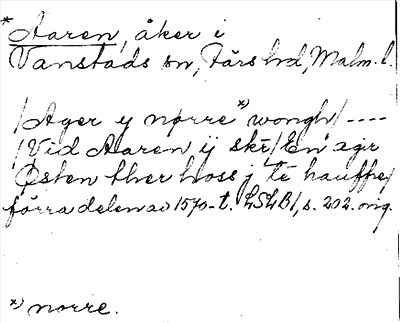 * Aaren, åker i
Vanstads sn, Färs hd, Malm. l.
/Ager y nørre *) wongh/ ----
/Vid Aaren ÿ skē/ En agr
Østen ther hoss j tē hauffre/
förra delen av 1570-t. LSLB1, s. 202. orig.
*) norre.